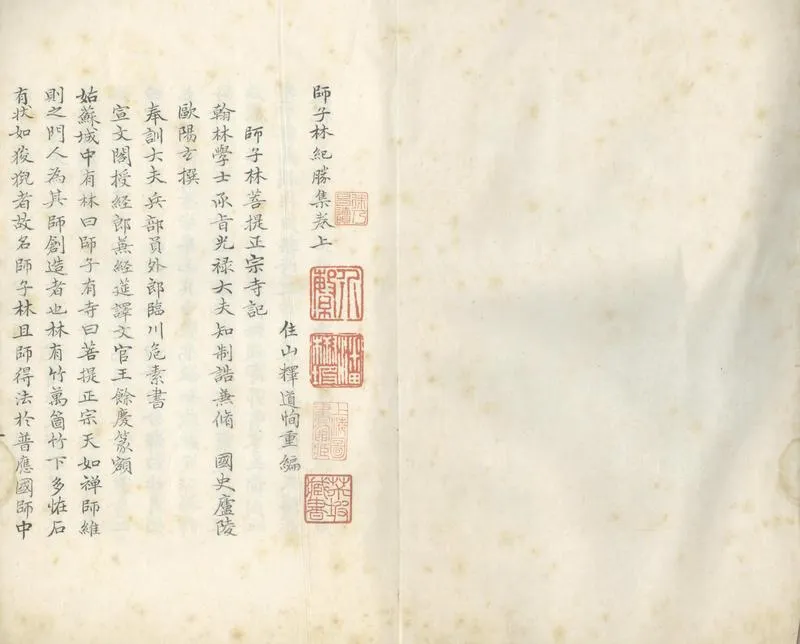 師子林紀勝集卷上
住山釋道恂重編
師子林菩提正宗寺記
翰林學士承旨光祿大夫知制誥兼脩 國史廬陵
歐陽玄撰
奉訓大夫兵部員外郎臨川危素書
宣文閣授經郎兼經筵譯文官王餘慶篆額
姑蘇城中有林曰師子有寺曰菩提正宗天如禅師維
則之門人為其師創造者也林有竹萬箇竹下多恠石
有状如狻猊者故名師子林且師得法於普應國師中